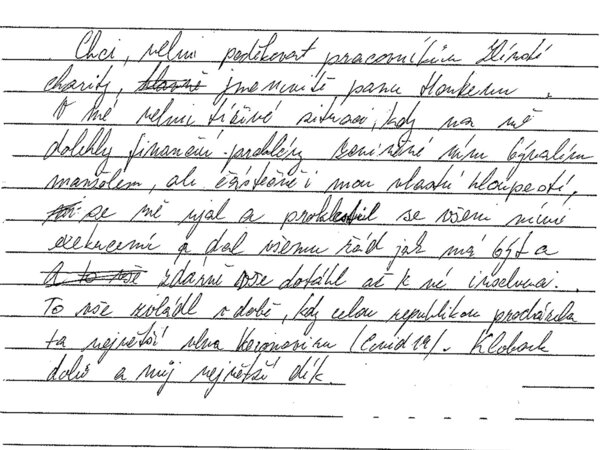 Chci, velmi poděkovat pracovníkům Hindi
charity, hlavně jmenovitě panu Honkemu.
V mé velmi tíživé situaci, kdy na mě
dolehly finanční problémy zaviněné mým bývalím
manželem, ale částečně i mou vlastní hloupostí,
se mě ujal a prokleštil se všemi mými
exekucemi a dal všemu řád jak má být a
A to vše zdárně vše dotáhl až k mé insolvenci.
To vše zvládl v době, kdy celou republikou procházela
ta největší vlna Koronaviru (Covid 19). Klobouk
dolů a můj největší dík.